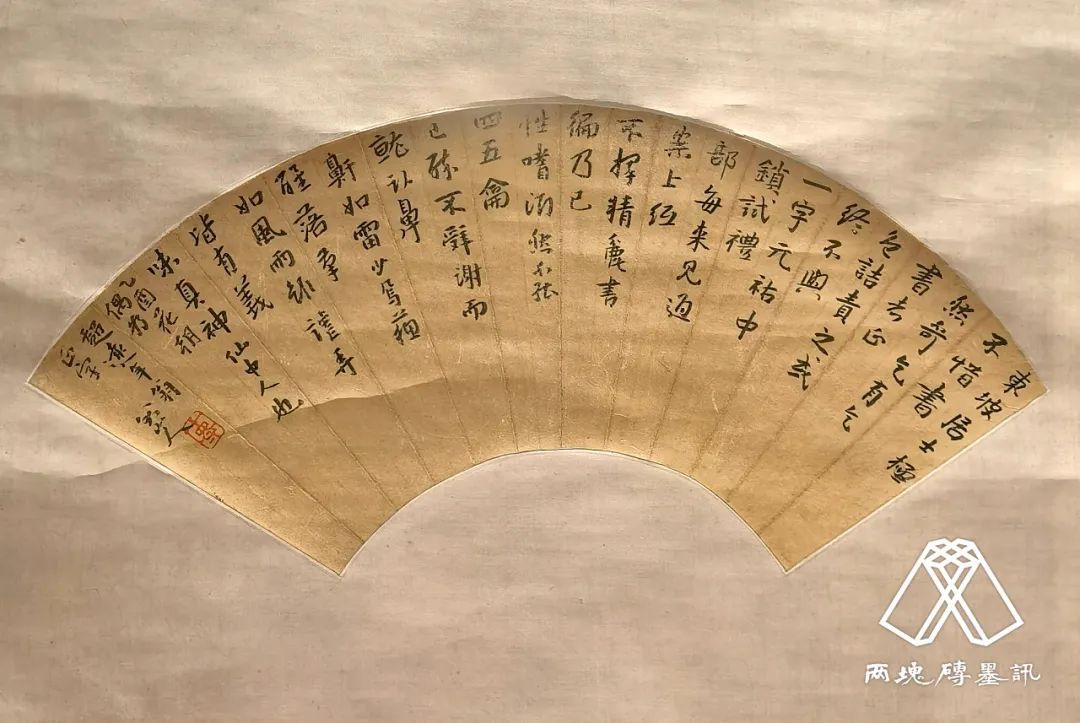 東坡居士極
不惜書
然奇乞有乞
書者正
色詰責之或
終不與
一字元祐中
鎖試禮
部每來見過
案上紙
不擇精麁書
編乃已
性嗜酒然不能
四五龠
已醉不辭謝而
就臥鼻
鼾如雷少焉蘓
醒落筆
如風雨雖謔弄
皆有義
味真神仙中人也
乙酉花朝
偶為
超遠年翁
正字
两塊磚墨訊